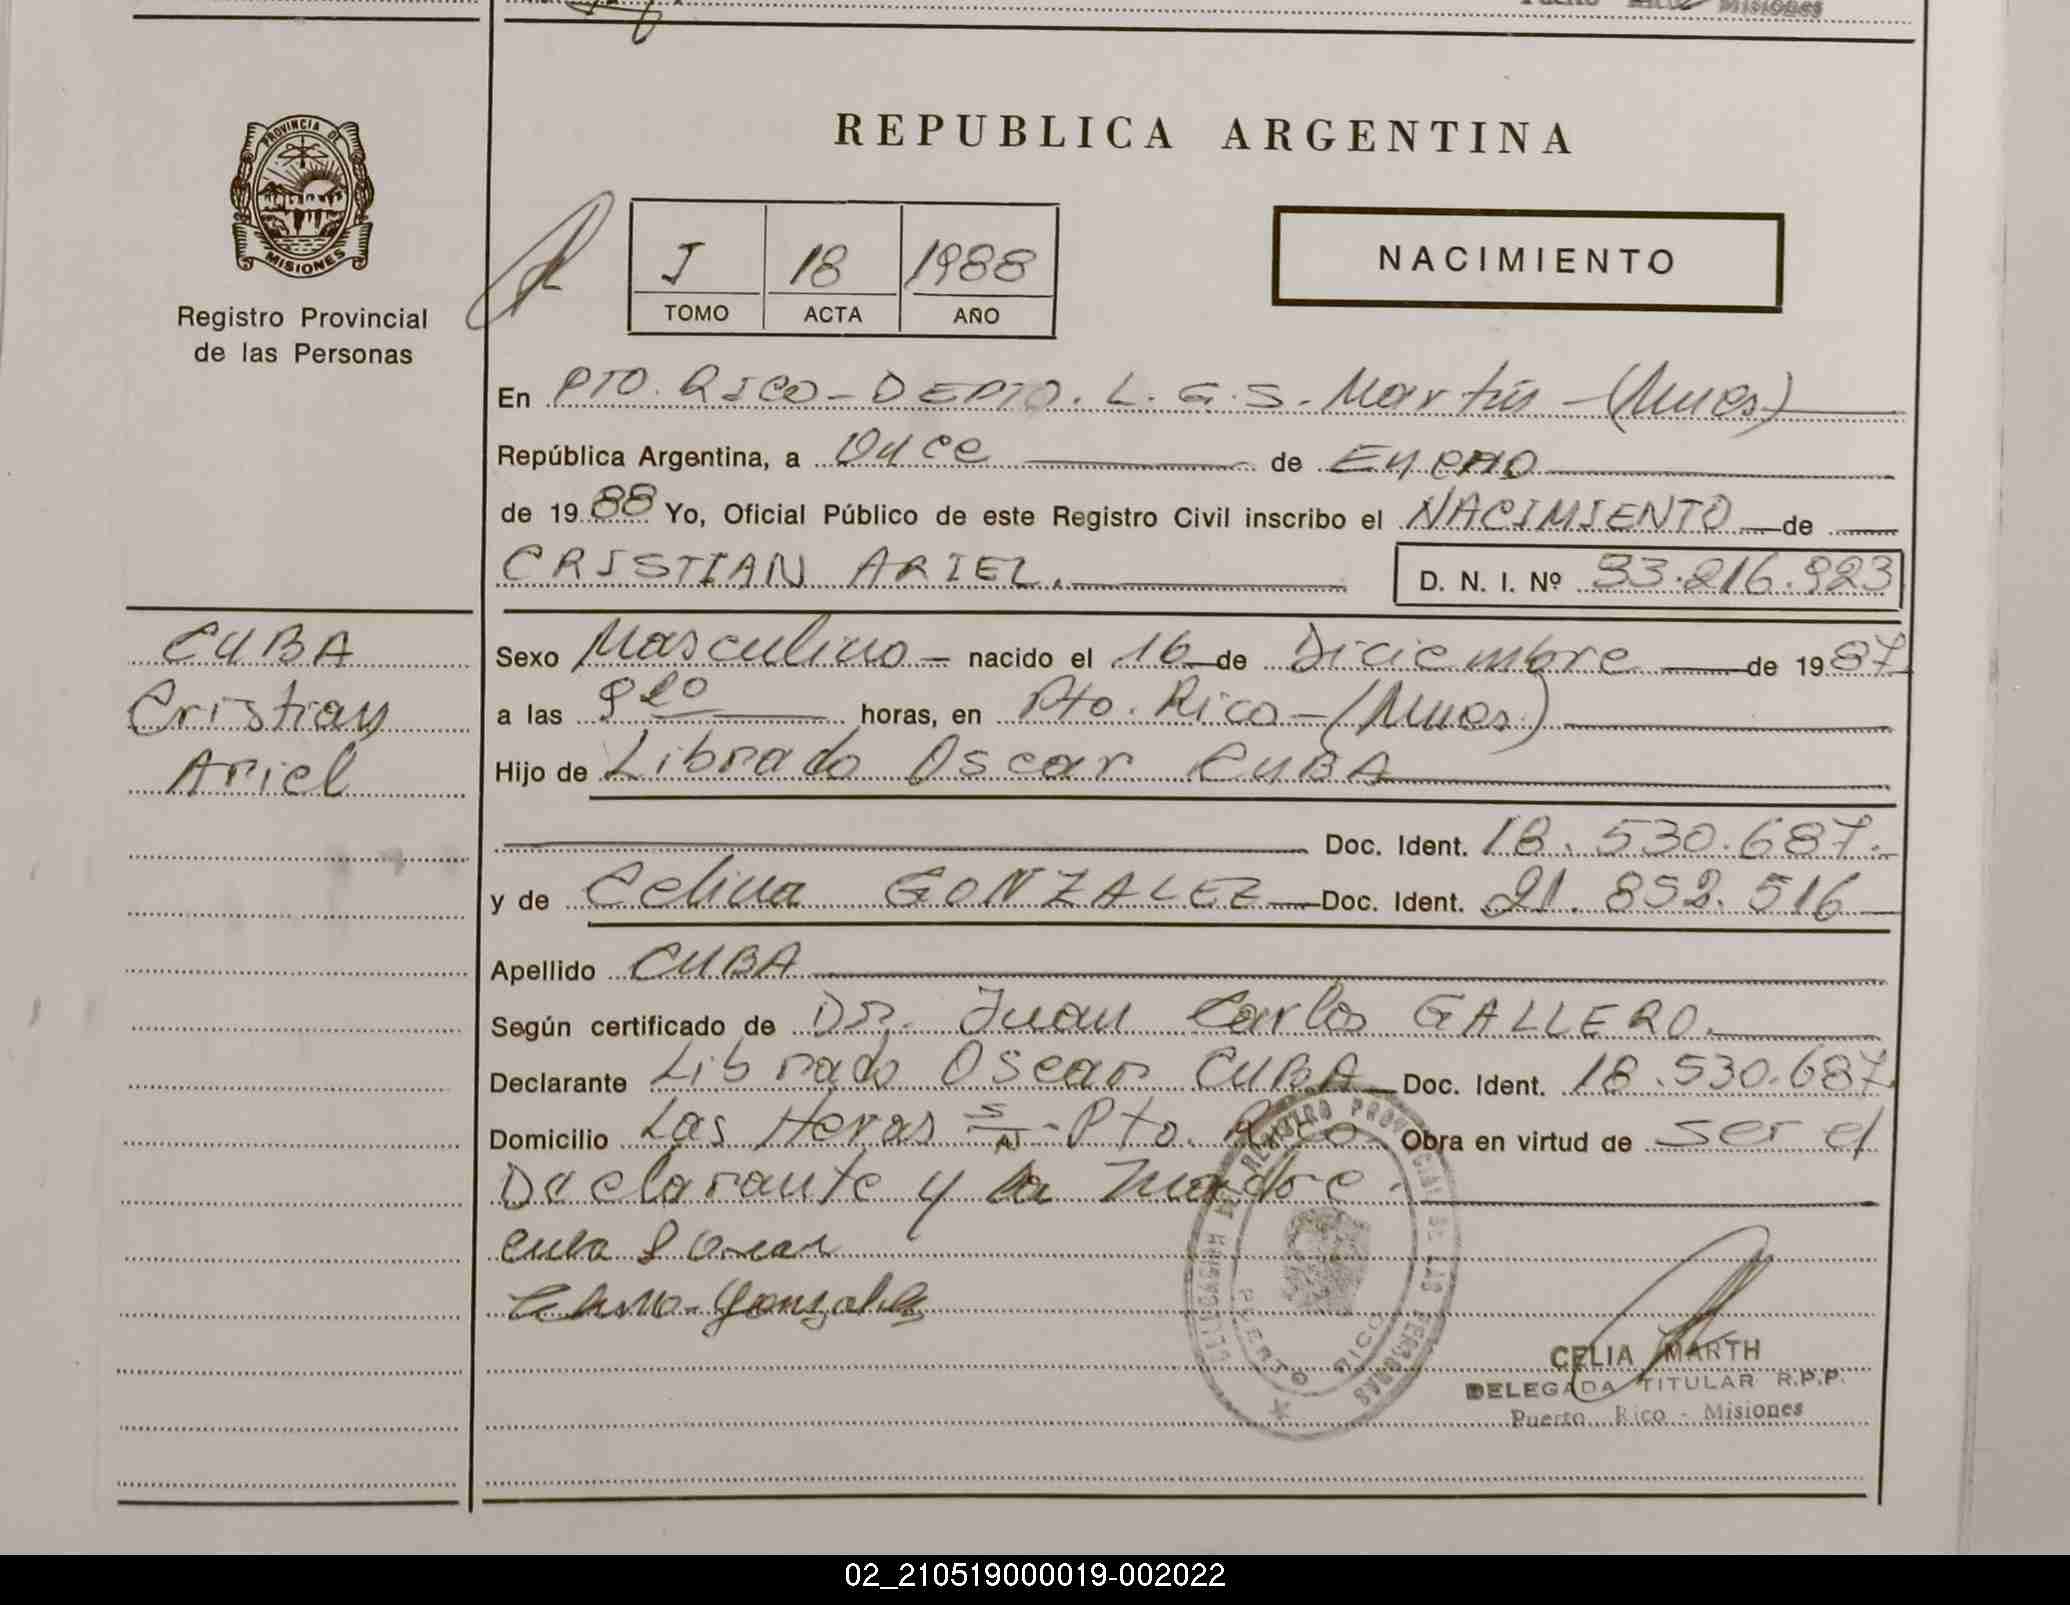 Puerto Rico Misiones
PROVINCIA DE
MISIONES
Registro Provincial
de las Personas
REPUBLICA ARGENTINA
I 18 1988
TOMO ACTA AÑO
NACIMIENTO
En PTO. RICO - DEPTO. L. G. S. Martín - (Mnes)
República Argentina, a Once de Enero
de 1988 Yo, Oficial Público de este Registro Civil inscribo el NACIMIENTO de
CRISTIAN ARIEL. D. N. I. Nº 33.216.923
CUBA
Cristian
Ariel
Sexo Masculino - nacido el 16 de Diciembre de 1987
a las horas, en Pto. Rico - (Mnes.)
Hijo de Librado Oscar CUBA
Doc. Ident. 18.530.687.
y de Celina GONZALEZ Doc. Ident. 21.852.516
Apellido CUBA
Según certificado de Dr. Juan Carlos GALLERO.
Declarante Librado Oscar CUBA Doc. Ident. 18.530.687
Domicilio Las Heras S/N - Pto. Rico Obra en virtud de ser el
Declarante y la Madre.
Cuba Oscar
Gonzalez
DELEGACION DEL REGISTRO PROVINCIAL DE LAS PERSONAS
PUERTO RICO
CELIA MARTH
DELEGADA TITULAR R.P.P.
Puerto Rico - Misiones
02_210519000019-002022